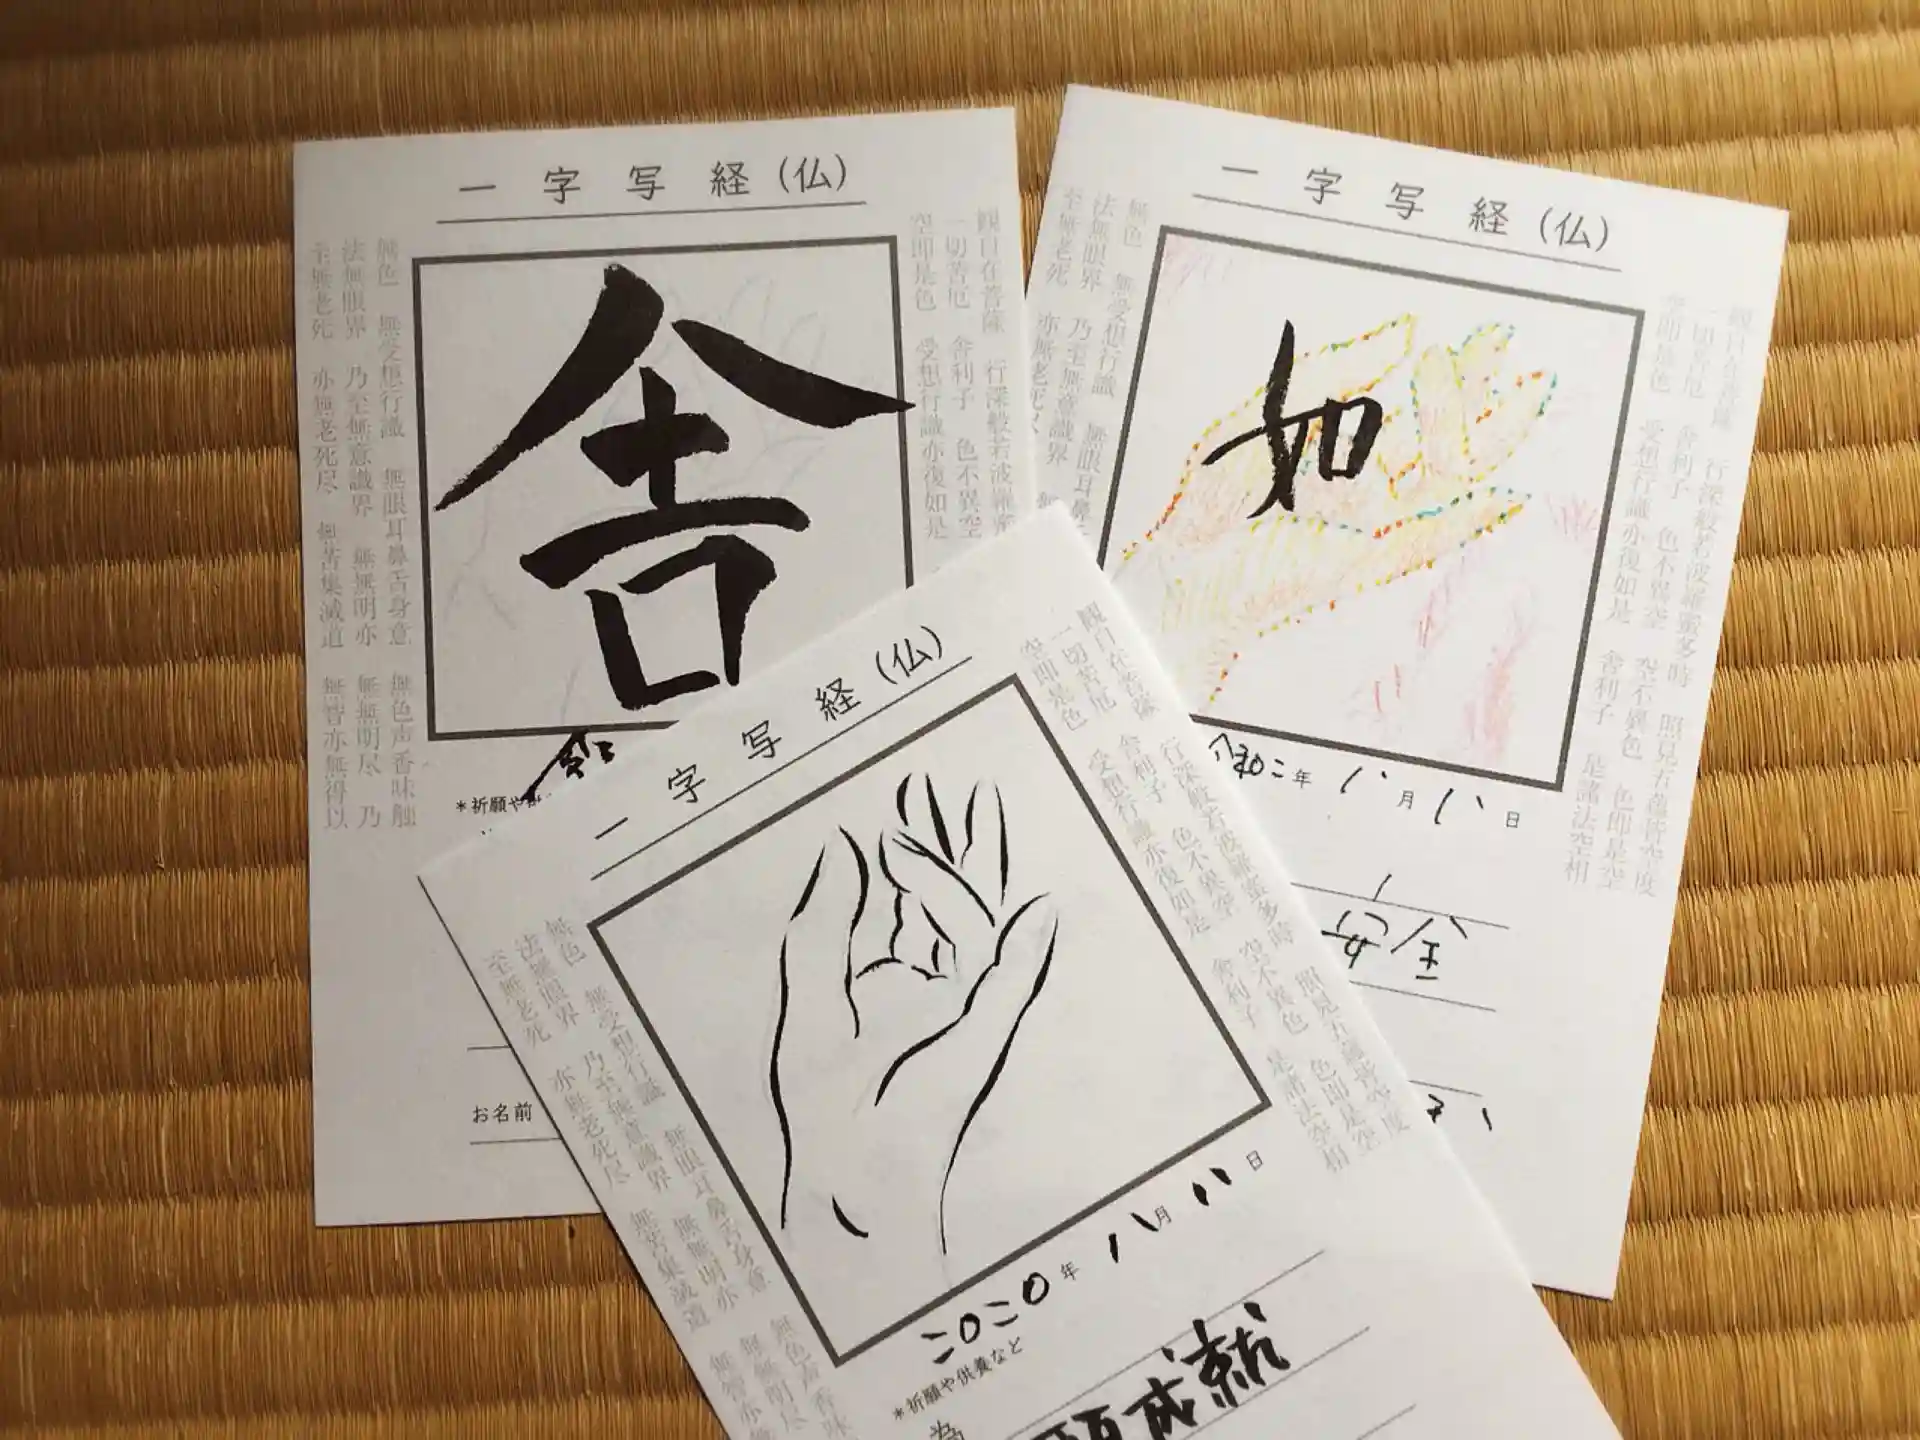 一字写経(仏)
観自在菩薩 行深般若波羅蜜
一切苦厄 舎利子 色不異空
空即是色 受想行識亦復如是
舎
無色 無受想行識 無眼耳鼻舌身意 無色声香味触
法無眼界 乃至無意識界 無無明亦 無無明尽 乃
至無老死 亦無老死尽 無苦集滅道 無智亦無得以
*祈願や供
お名前
一字写経(仏)
観自在菩薩 行深般若波羅蜜多時 照見五蘊皆空度
一切苦厄 舎利子 色不異空 空不異色 色即是空
空即是色 受想行識亦復如是 舎利子 是諸法空相
如
無色 無受想行識 無眼耳鼻
法無眼界 乃至無意識界 無
至無老死 亦無老死尽
令和二年 八月 八日
安全
一字写経(仏)
観自在菩薩 行深般若波羅蜜多時 照見五蘊皆空度
一切苦厄 舎利子 色不異空 空不異色 色即是空
空即是色 受想行識亦復如是 舎利子 是諸法空相
無色 無受想行識 無眼耳鼻舌身意 無色声香味
法無眼界 乃至無意識界 無無明亦 無無明尽
至無老死 亦無老死尽 無苦集滅道 無智亦
二〇二〇年 八月 八日
*祈願や供養など
為
願成就